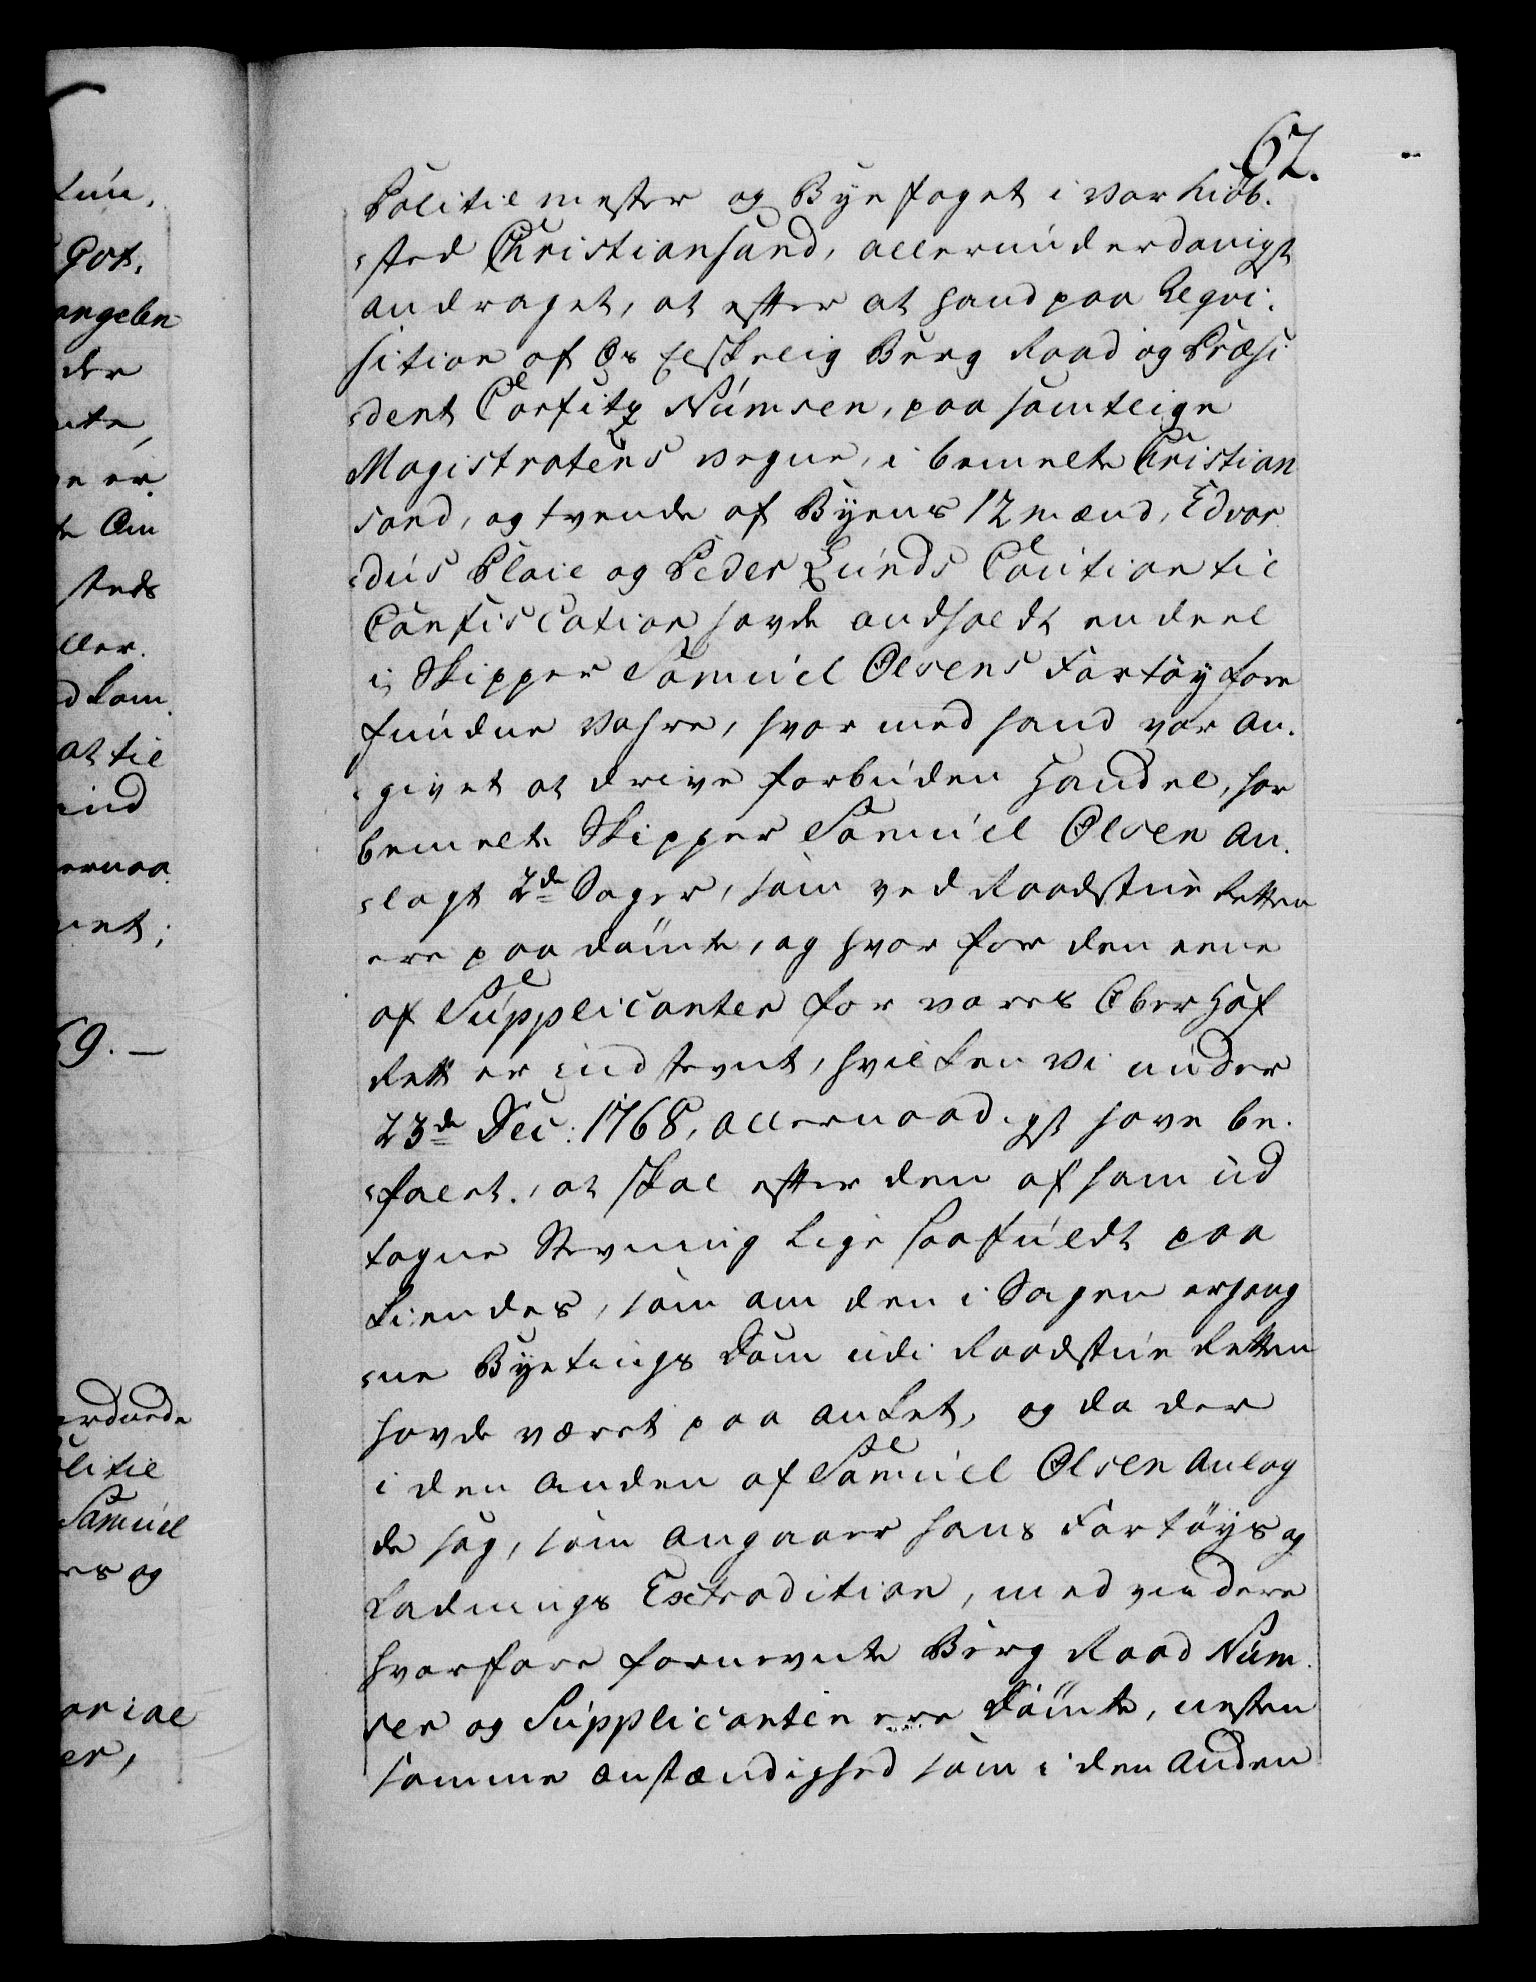 67.
Politiemester og Byefoget i vor Kiöb-
sted Christiansand, allerunderdanigst
andraget, at efter at hand paa Reqvi-
sition af Os Elskelig Berg Raad og Præsi
dent Corfitz Numsen, paa samtlige
Magistratens vegne, i bemelte Cristian
sand, og tvende af Byens 12 mænd, Edvar
dus Ploie og Peder Lunds Caution til
Confiscation havde andholdt en deel
i Skipper Samuel Olsens Fartöy fore
fundne Vahre, hvor med hand var an-
givet at drive forbuden Handel, har
bemelte Skipper Samuel Olsen an-
lagt 2de Sager, som ved Raadstue Retten
ere paa dömte, og hvor for den eene
af Supplicanten for vores Ober Hof
Rett er ind stevnt, hvilken Vi under
23de Dec: 1768, allernaadigst have be-
falet, at skal efter den af ham ud
tagne Stevning lige saafuldt paa
kiendes, som om den i Sagen ergang
ne Byetings Dom udi Raadstue Retten
havde været paa anket, og da der
i den anden af Samuel Olsen anlag
de sag, som angaaer hans Fartöys og
Ladnings Extradition, med videre
hvorfore fornevnte Berg Raad Num-
sen og Supplicanten ere Dömte, nesten
samme omstændighed som i den anden
tun,
Got,
angeben
der
Om
steds
ller.
dkom
at til
ind
ernaa
net;
69. —
erdnede
olitie
Samuel
es og
er,